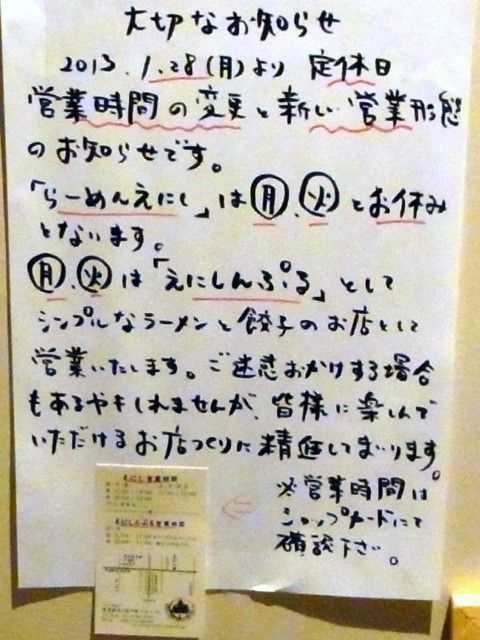 大切なお知らせ
2013.1.28(月)より 定休日
営業時間の変更と新しい営業形態
のお知らせです。
「らーめんえにし」は月、火とお休み
となります。
月、火は「えにしんぷる」として
シンプルなラーメンと餃子のお店として
営業いたします。ご迷惑おかけする場合
もあるやもしれませんが、皆様に楽しんで
いただけるお店づくりに精進してまいります。
※営業時間は
ショップカードにて
確認下さい。
えにし営業時間
えにしんぷる営業時間